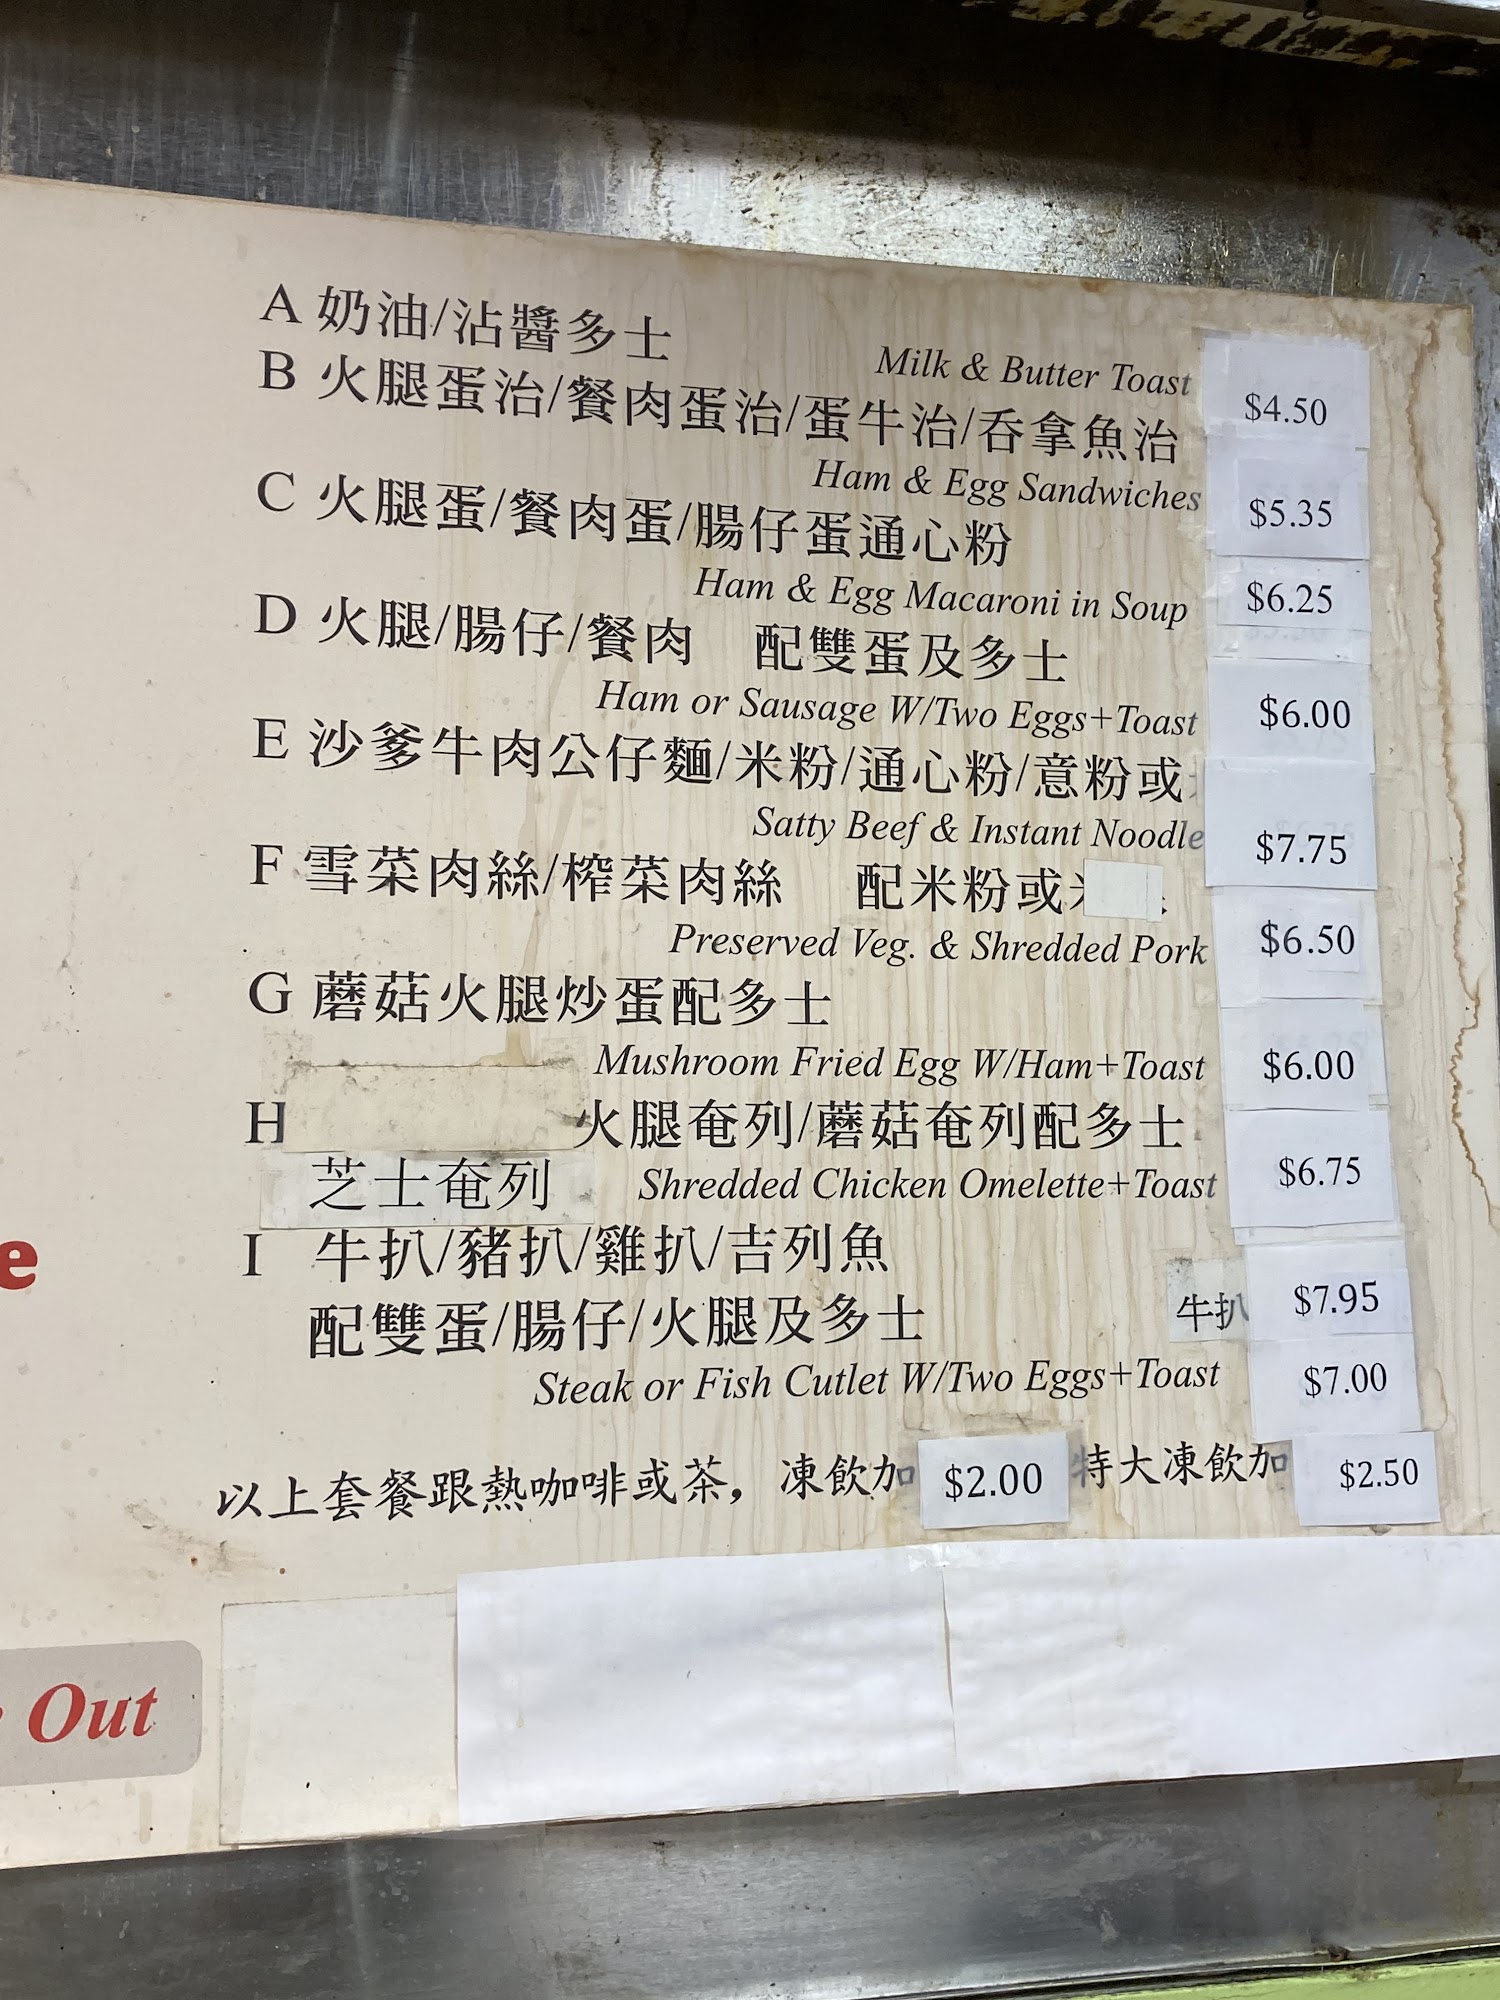 A 奶油/沾醬多士
Milk & Butter Toast $4.50
B 火腿蛋治/餐肉蛋治/蛋牛治/吞拿魚治
Ham & Egg Sandwiches $5.35
C 火腿蛋/餐肉蛋/腸仔蛋通心粉
Ham & Egg Macaroni in Soup $6.25
D 火腿/腸仔/餐肉 配雙蛋及多士
Ham or Sausage W/Two Eggs+Toast $6.00
E 沙爹牛肉公仔麵/米粉/通心粉/意粉或
Satty Beef & Instant Noodle $7.75
F 雪菜肉絲/榨菜肉絲 配米粉或
Preserved Veg. & Shredded Pork $6.50
G 蘑菇火腿炒蛋配多士
Mushroom Fried Egg W/Ham+Toast $6.00
H 火腿奄列/蘑菇奄列配多士
芝士奄列 Shredded Chicken Omelette+Toast $6.75
I 牛扒/豬扒/雞扒/吉列魚
配雙蛋/腸仔/火腿及多士 牛扒 $7.95
Steak or Fish Cutlet W/Two Eggs+Toast $7.00
以上套餐跟熱咖啡或茶，凍飲加 $2.00 特大凍飲加 $2.50
e
Out